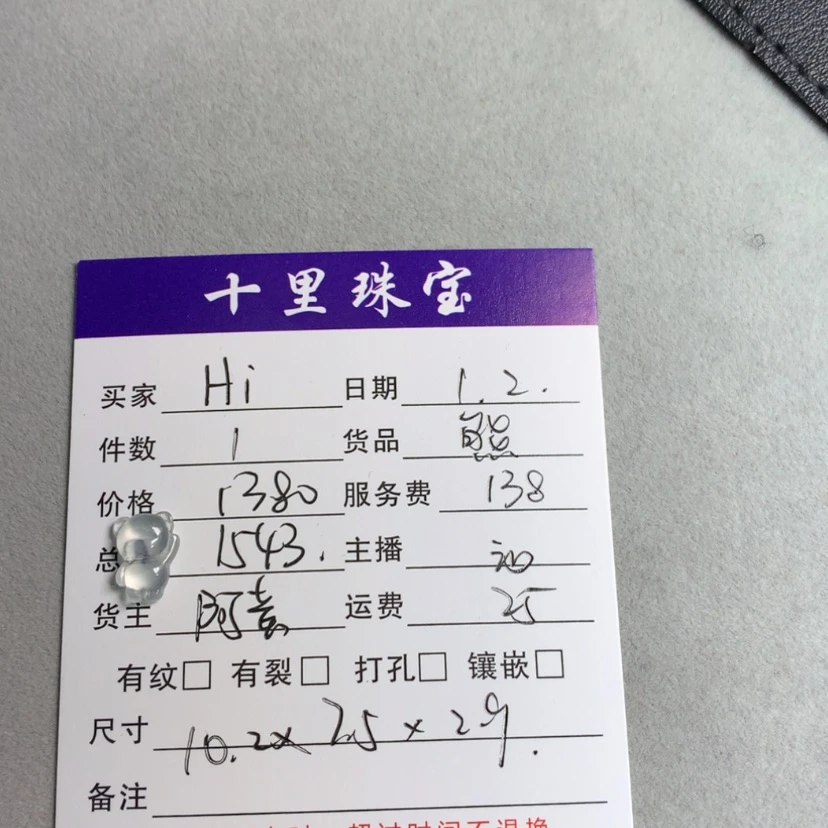 十里珠宝
买家 Hi 日期 1.2.
件数 1 货品 熊
价格 1380 服务费 138
总 1543. 主播
货主 阿袁 运费 25
有纹□ 有裂□ 打孔□ 镶嵌□
尺寸 10.2x 7.5 x 2.9.
备注
超过时间不退换